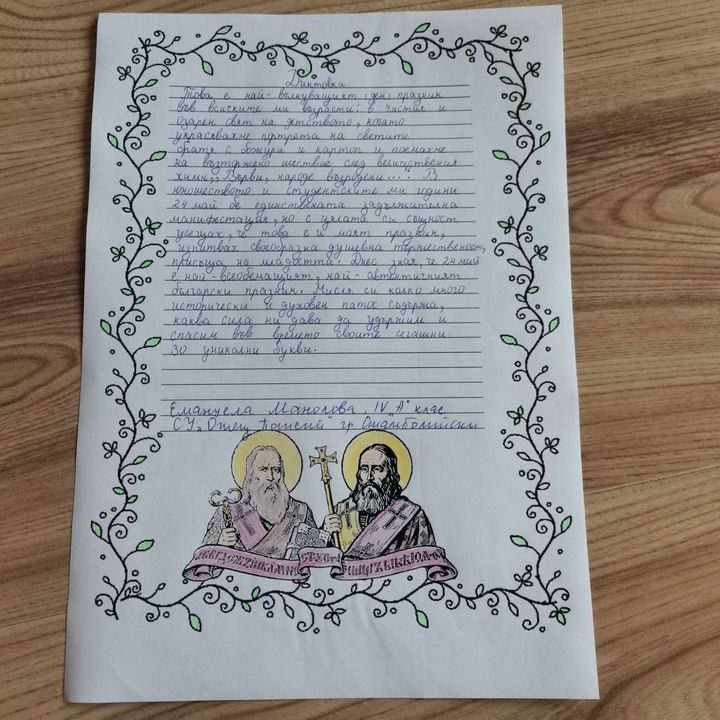 Диктовка
Това е най-вълнуващият (ден) празник
във всичките ми възрасти: в чистия и
озарен свят на детството, когато
украсявахме портрета на светите
братя с божури и картоп и поемахме
на възторжено шествие след величествения
химн „Върви, народе възродени...". В
юношеството и студентските ми години
24 май бе единствената задължителна
манифестация, но с цялата си същност
усещах, че това е и моят празник,
изпитвах своеобразна душевна тържественост,
присъща на младостта. Днес зная, че 24 май
е най-всеобемащият, най-автентичният
български празник. Мисля си колко много
исторически и духовен патос съдържа,
каква сила ни дава да удържим и
спасим във времето своите сегашни
30 уникални букви.
Емануела Манолова, IV „А" клас
СУ „Отец Паисий" гр. Стамболийски